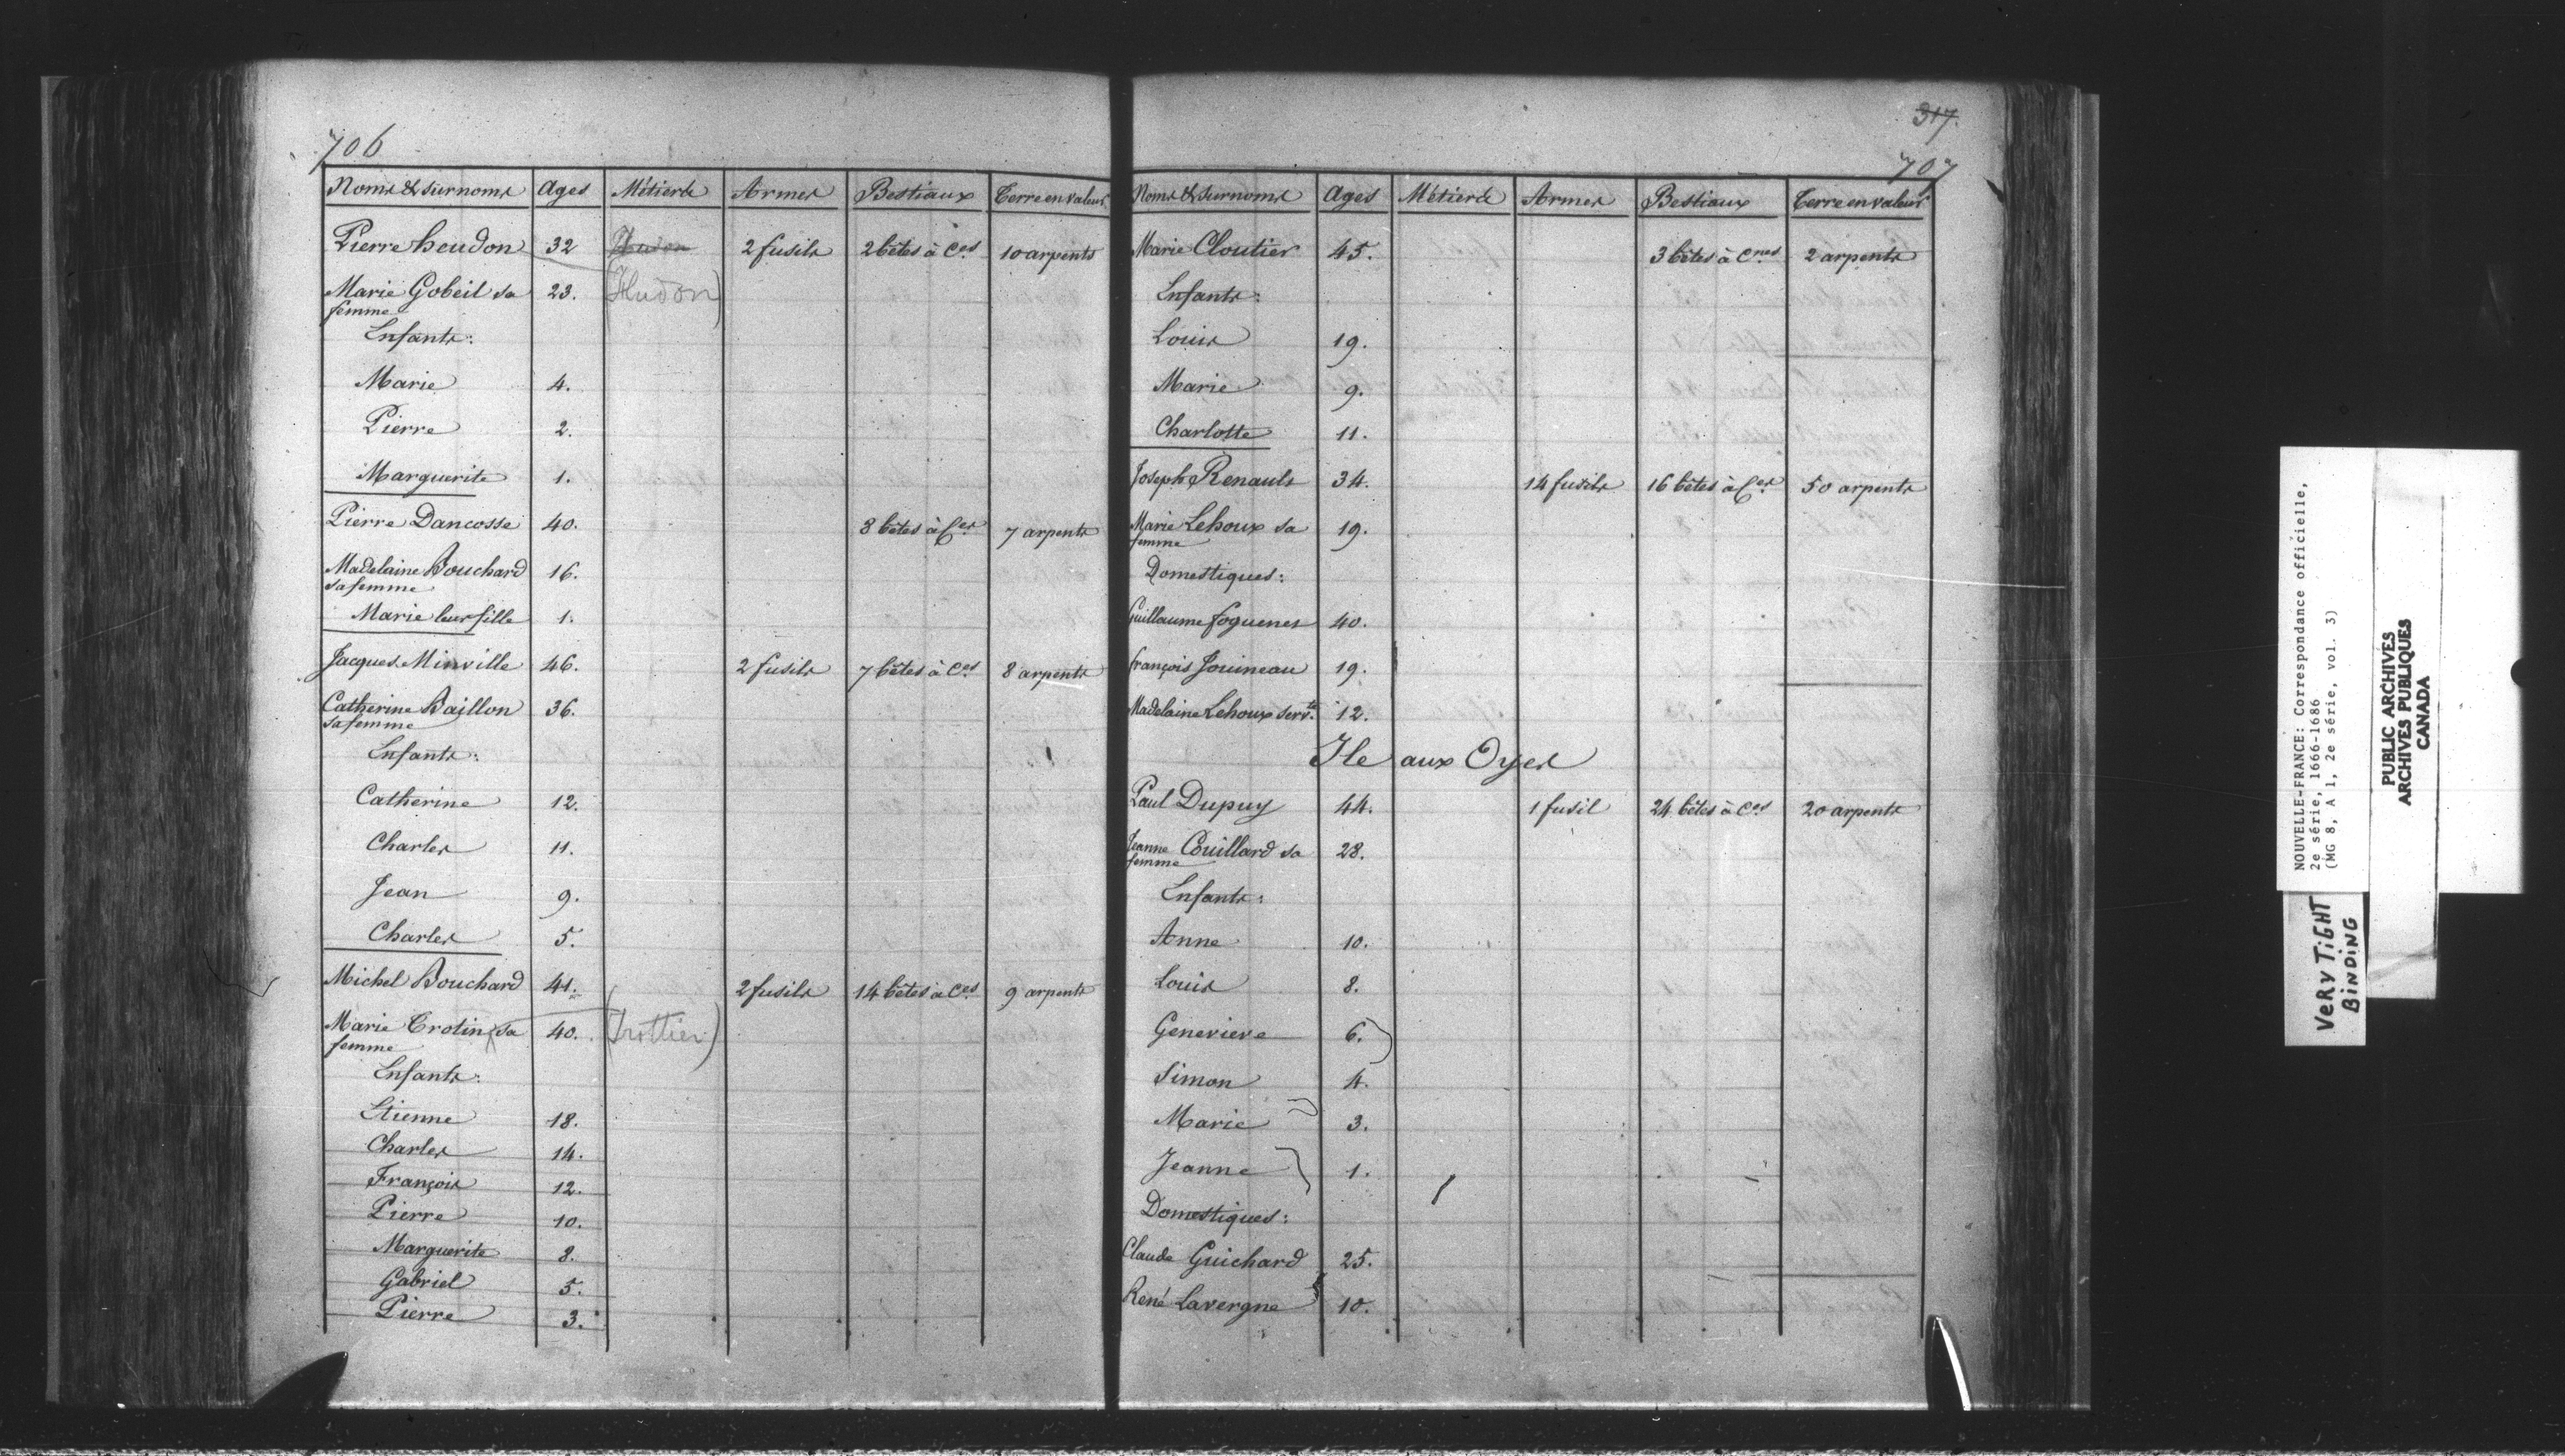 706
Noms & surnoms Ages Métiers Armes Bestiaux Terre en valeur
Pierre heudon 32 Hudon 2 fusils 2 bêtes à Ces 10 arpents
Marie Gobeil sa 23. (Hudon)
femme
Enfants:
Marie 4.
Pierre 2.
Marguerite 1.
Pierre Dancosse 40. 8 bêtes à Ces 7 arpents
Madelaine Bouchard 16.
sa femme
Marie leur fille 1.
Jacques Minville 46. 2 fusils 7 bêtes à Ces 8 arpents
Catherine Baillon 36.
sa femme
Enfants:
Catherine 12.
Charles 11.
Jean 9.
Charles 5.
Michel Bouchard 41. 2 fusils 14 bêtes à Ces 9 arpents
Marie Trotin sa 40. (Trottier)
femme
Enfants:
Etienne 18.
Charles 14.
François 12.
Pierre 10.
Marguerite 8.
Gabriel 5.
Pierre 3.
317.
707
Noms & surnoms Ages Métiers Armes Bestiaux Terre en valeur
Marie Cloutier 45. 3 bêtes à Cnes 2 arpents
Enfants:
Louis 19.
Marie 9.
Charlotte 11.
Joseph Renault 34. 14 fusils 16 bêtes à Ces 50 arpents
Marie Lehoux sa 19.
femme
Domestiques:
Guillaume foquenes 40.
françois Jouineau 19.
Madelaine Lehoux servte 12.
Ile aux Oyes
Paul Dupuy 44. 1 fusil 24 bêtes à Ces 20 arpents
Jeanne Couillard sa 28.
femme
Enfants:
Anne 10.
Louis 8.
Genevieve 6.
Simon 4.
Marie 3.
Jeanne 1.
Domestiques:
Claude Guichard 25.
René Lavergne 10.
NOUVELLE-FRANCE: Correspondance officielle,
2e série, 1666-1686
(MG 8, A 1, 2e série, vol. 3)
PUBLIC ARCHIVES
ARCHIVES PUBLIQUES
CANADA
VERY TIGHT
BINDING